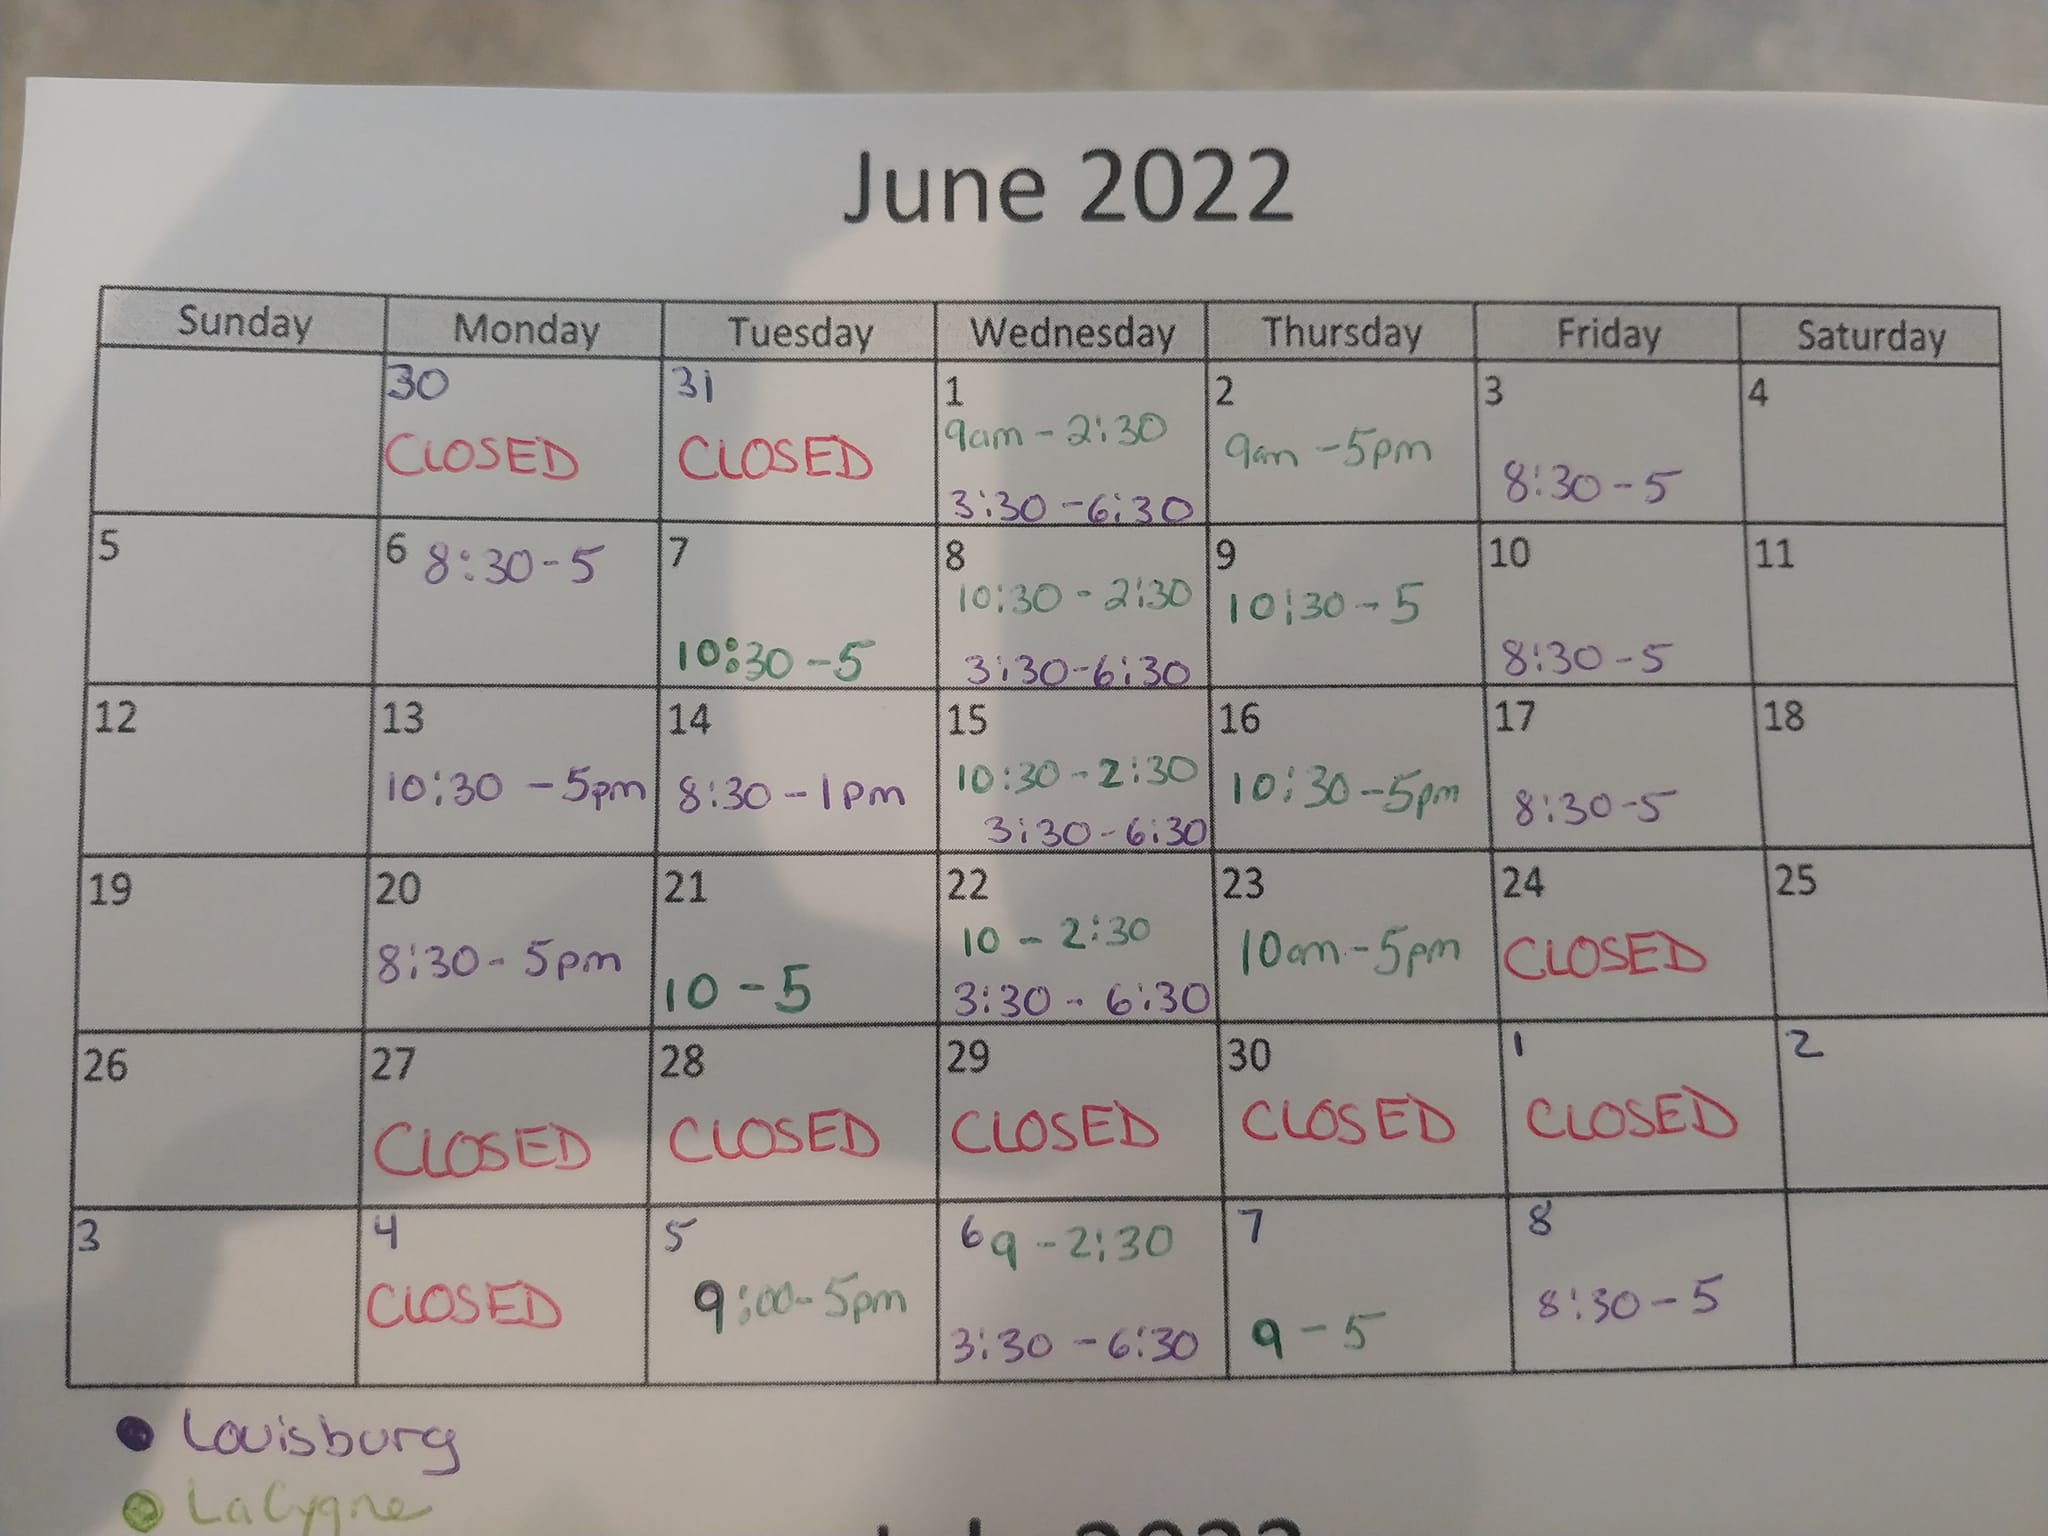 June 2022
Sunday Monday Tuesday Wednesday Thursday Friday Saturday
30 31 1 2 3 4
CLOSED CLOSED 9am - 2:30 9am - 5pm 8:30 - 5
3:30 - 6:30
5 6 8:30 - 5 7 8 9 10 11
10:30 - 2:30 10:30 - 5
10:30 - 5 3:30 - 6:30 8:30 - 5
12 13 14 15 16 17 18
10:30 - 5pm 8:30 - 1pm 10:30 - 2:30 10:30 - 5pm 8:30 - 5
3:30 - 6:30
19 20 21 22 23 24 25
8:30 - 5pm 10 - 2:30 10am - 5pm CLOSED
10 - 5 3:30 - 6:30
26 27 28 29 30 1 2
CLOSED CLOSED CLOSED CLOSED CLOSED
3 4 5 6 9 - 2:30 7 8
CLOSED 9:00 - 5pm 8:30 - 5
3:30 - 6:30 9 - 5
Louisburg
LaCygne